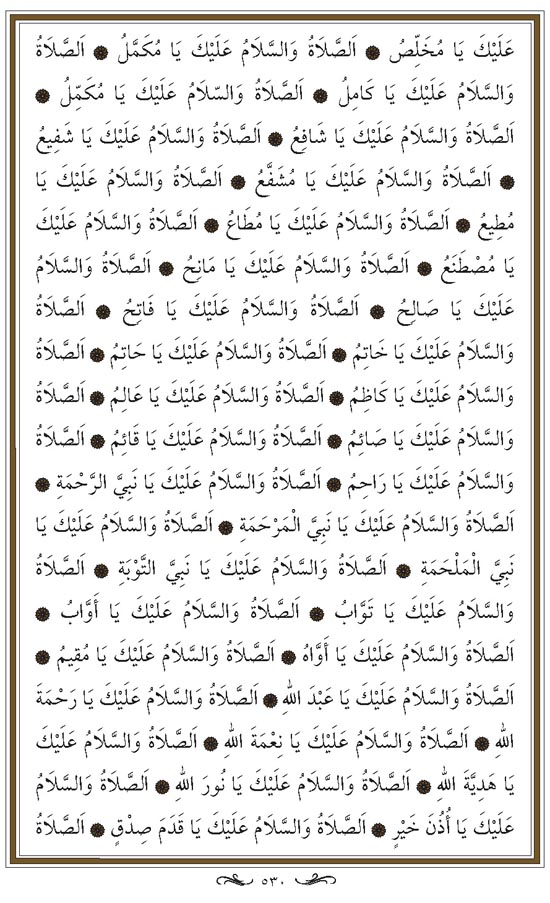 عَلَيْكَ يَا مُخَلِّصُ ❁ اَلصَّلَاةُ وَالسَّلَامُ عَلَيْكَ يَا مُكَمَّلُ ❁ اَلصَّلَاةُ
وَالسَّلَامُ عَلَيْكَ يَا كَامِلُ ❁ اَلصَّلَاةُ وَالسَّلَامُ عَلَيْكَ يَا مُكَمِّلُ ❁
اَلصَّلَاةُ وَالسَّلَامُ عَلَيْكَ يَا شَافِعُ ❁ اَلصَّلَاةُ وَالسَّلَامُ عَلَيْكَ يَا شَفِيعُ
❁ اَلصَّلَاةُ وَالسَّلَامُ عَلَيْكَ يَا مُشَفَّعُ ❁ اَلصَّلَاةُ وَالسَّلَامُ عَلَيْكَ يَا
مُطِيعُ ❁ اَلصَّلَاةُ وَالسَّلَامُ عَلَيْكَ يَا مُطَاعُ ❁ اَلصَّلَاةُ وَالسَّلَامُ عَلَيْكَ
يَا مُصْطَنَعُ ❁ اَلصَّلَاةُ وَالسَّلَامُ عَلَيْكَ يَا مَانِحُ ❁ اَلصَّلَاةُ وَالسَّلَامُ
عَلَيْكَ يَا صَالِحُ ❁ اَلصَّلَاةُ وَالسَّلَامُ عَلَيْكَ يَا فَاتِحُ ❁ اَلصَّلَاةُ
وَالسَّلَامُ عَلَيْكَ يَا خَاتِمُ ❁ اَلصَّلَاةُ وَالسَّلَامُ عَلَيْكَ يَا حَاتِمُ ❁ اَلصَّلَاةُ
وَالسَّلَامُ عَلَيْكَ يَا كَاظِمُ ❁ اَلصَّلَاةُ وَالسَّلَامُ عَلَيْكَ يَا عَالِمُ ❁ اَلصَّلَاةُ
وَالسَّلَامُ عَلَيْكَ يَا صَائِمُ ❁ اَلصَّلَاةُ وَالسَّلَامُ عَلَيْكَ يَا قَائِمُ ❁ اَلصَّلَاةُ
وَالسَّلَامُ عَلَيْكَ يَا رَاحِمُ ❁ اَلصَّلَاةُ وَالسَّلَامُ عَلَيْكَ يَا نَبِيَّ الرَّحْمَةِ ❁
اَلصَّلَاةُ وَالسَّلَامُ عَلَيْكَ يَا نَبِيَّ الْمَرْحَمَةِ ❁ اَلصَّلَاةُ وَالسَّلَامُ عَلَيْكَ يَا
نَبِيَّ الْمَلْحَمَةِ ❁ اَلصَّلَاةُ وَالسَّلَامُ عَلَيْكَ يَا نَبِيَّ التَّوْبَةِ ❁ اَلصَّلَاةُ
وَالسَّلَامُ عَلَيْكَ يَا تَوَّابُ ❁ اَلصَّلَاةُ وَالسَّلَامُ عَلَيْكَ يَا أَوَّابُ ❁
اَلصَّلَاةُ وَالسَّلَامُ عَلَيْكَ يَا أَوَّاهُ ❁ اَلصَّلَاةُ وَالسَّلَامُ عَلَيْكَ يَا مُقِيمُ ❁
اَلصَّلَاةُ وَالسَّلَامُ عَلَيْكَ يَا عَبْدَ اللهِ ❁ اَلصَّلَاةُ وَالسَّلَامُ عَلَيْكَ يَا رَحْمَةَ
اللهِ ❁ اَلصَّلَاةُ وَالسَّلَامُ عَلَيْكَ يَا نِعْمَةَ اللهِ ❁ اَلصَّلَاةُ وَالسَّلَامُ عَلَيْكَ
يَا هَدِيَّةَ اللهِ ❁ اَلصَّلَاةُ وَالسَّلَامُ عَلَيْكَ يَا نُورَ اللهِ ❁ اَلصَّلَاةُ وَالسَّلَامُ
عَلَيْكَ يَا أُذُنَ خَيْرٍ ❁ اَلصَّلَاةُ وَالسَّلَامُ عَلَيْكَ يَا قَدَمَ صِدْقٍ ❁ اَلصَّلَاةُ
٥٣٠